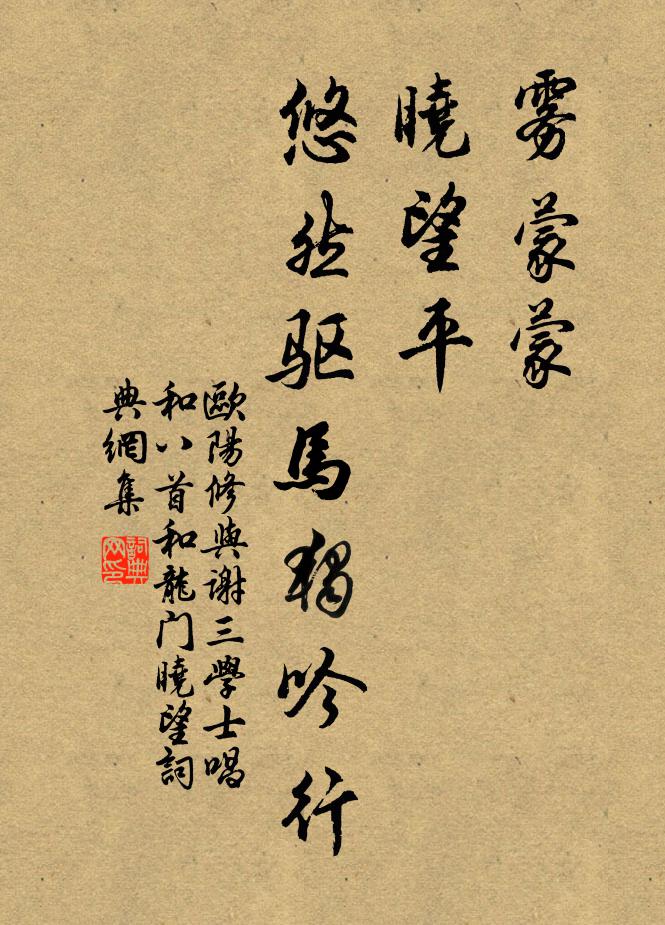 雾蒙蒙
曉望平
悠然驱馬獨吟行
歐陽修與謝三學士唱
和八首和龍门曉望詞
典網集
詞典網印